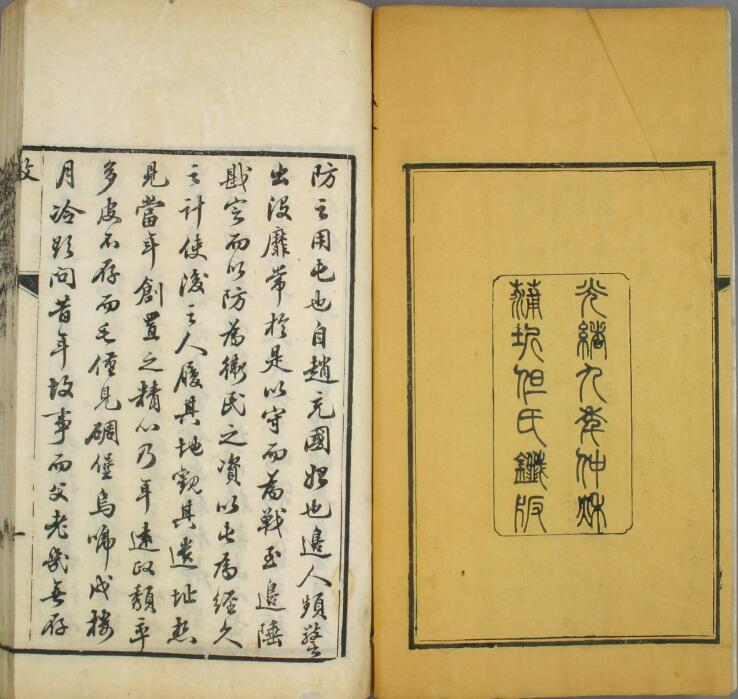 光緒九年仲秌
蒲圻但氏版
防之用屯也自趙充國始也邊人頻警
出没靡常於是以守而為戰至邊陲
戡定而以防為衛民之資以屯為經久
之計使後之人履其地觀其遺址想
見當年創置之精心乃年遠政頹率
多皮不存而毛僅見碉堡烏啼戍樓
月冷欲問昔年故事而父老幾無存